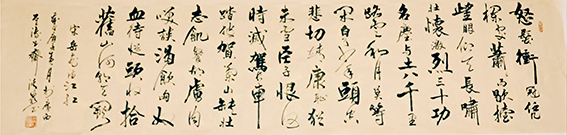 怒髮衝冠凭
欄處蕭雨歇擡
望眼仰天長嘯
壯懷激烈三十功
名塵與土八千里
路雲和月莫等
閑白了少年頭空
悲切靖康恥猶
未雪臣子恨何
時滅駕長車
踏破賀蘭山缺壯
志飢餐胡虜肉
笑談渴飲匈奴
血待從頭收拾
舊山河朝天闕
宋岳飛滿江紅